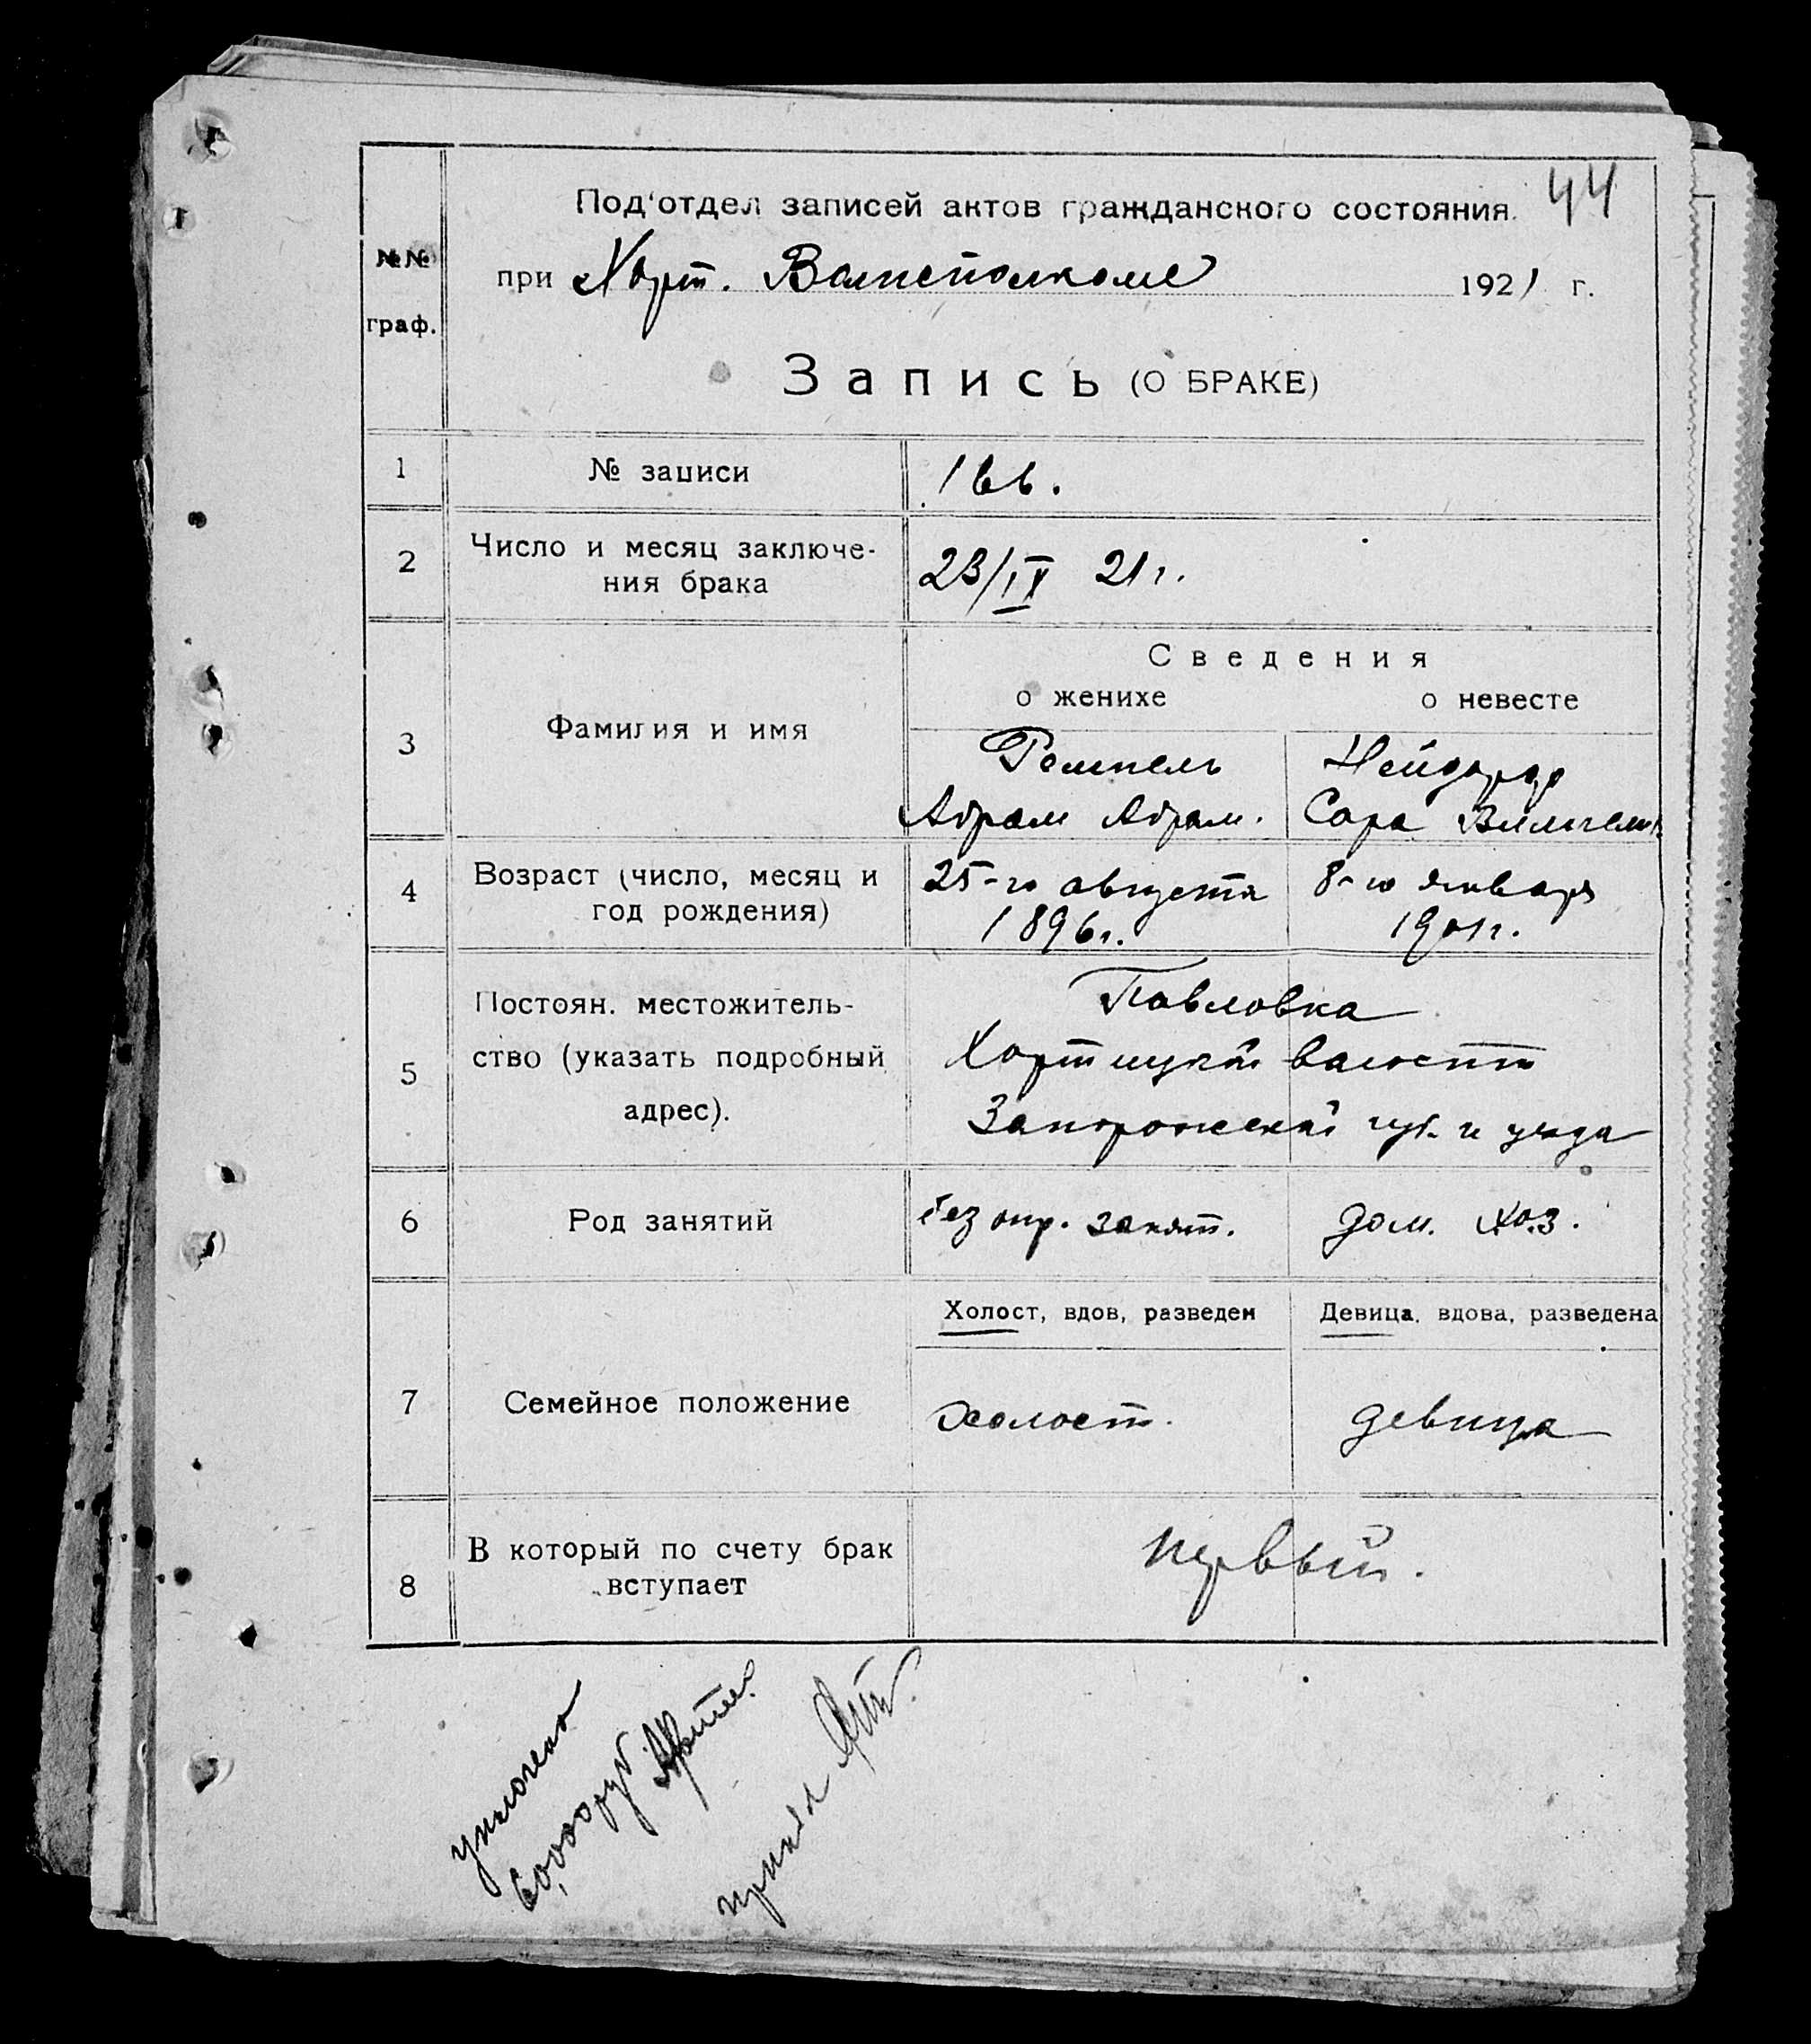 44
№№
граф.
Под'отдел записей актов гражданского состояния.
при Хорт. Волисполкоме 1921 г.
Запись (О БРАКЕ)
1 № записи 166.
2 Число и месяц заключе-
ния брака 23/IX 21 г.
Сведения
о женихе о невесте
3 Фамилия и имя
Ремпель Нейдорф
Абрам Абрам. Сара Вильгельм.
4 Возраст (число, месяц и
год рождения)
25-го августа 8-го января
1896 г. 1901 г.
5 Постоян. местожитель-
ство (указать подробный
адрес).
Павловка
Хортицкой волости
Запорожской губ. и уезда
6 Род занятий без опр. занят. дом. хоз.
Холост, вдов, разведен Девица, вдова, разведена
7 Семейное положение холост. девица
8 В который по счету брак
вступает первый.
уплочено
60,000 руб
принял